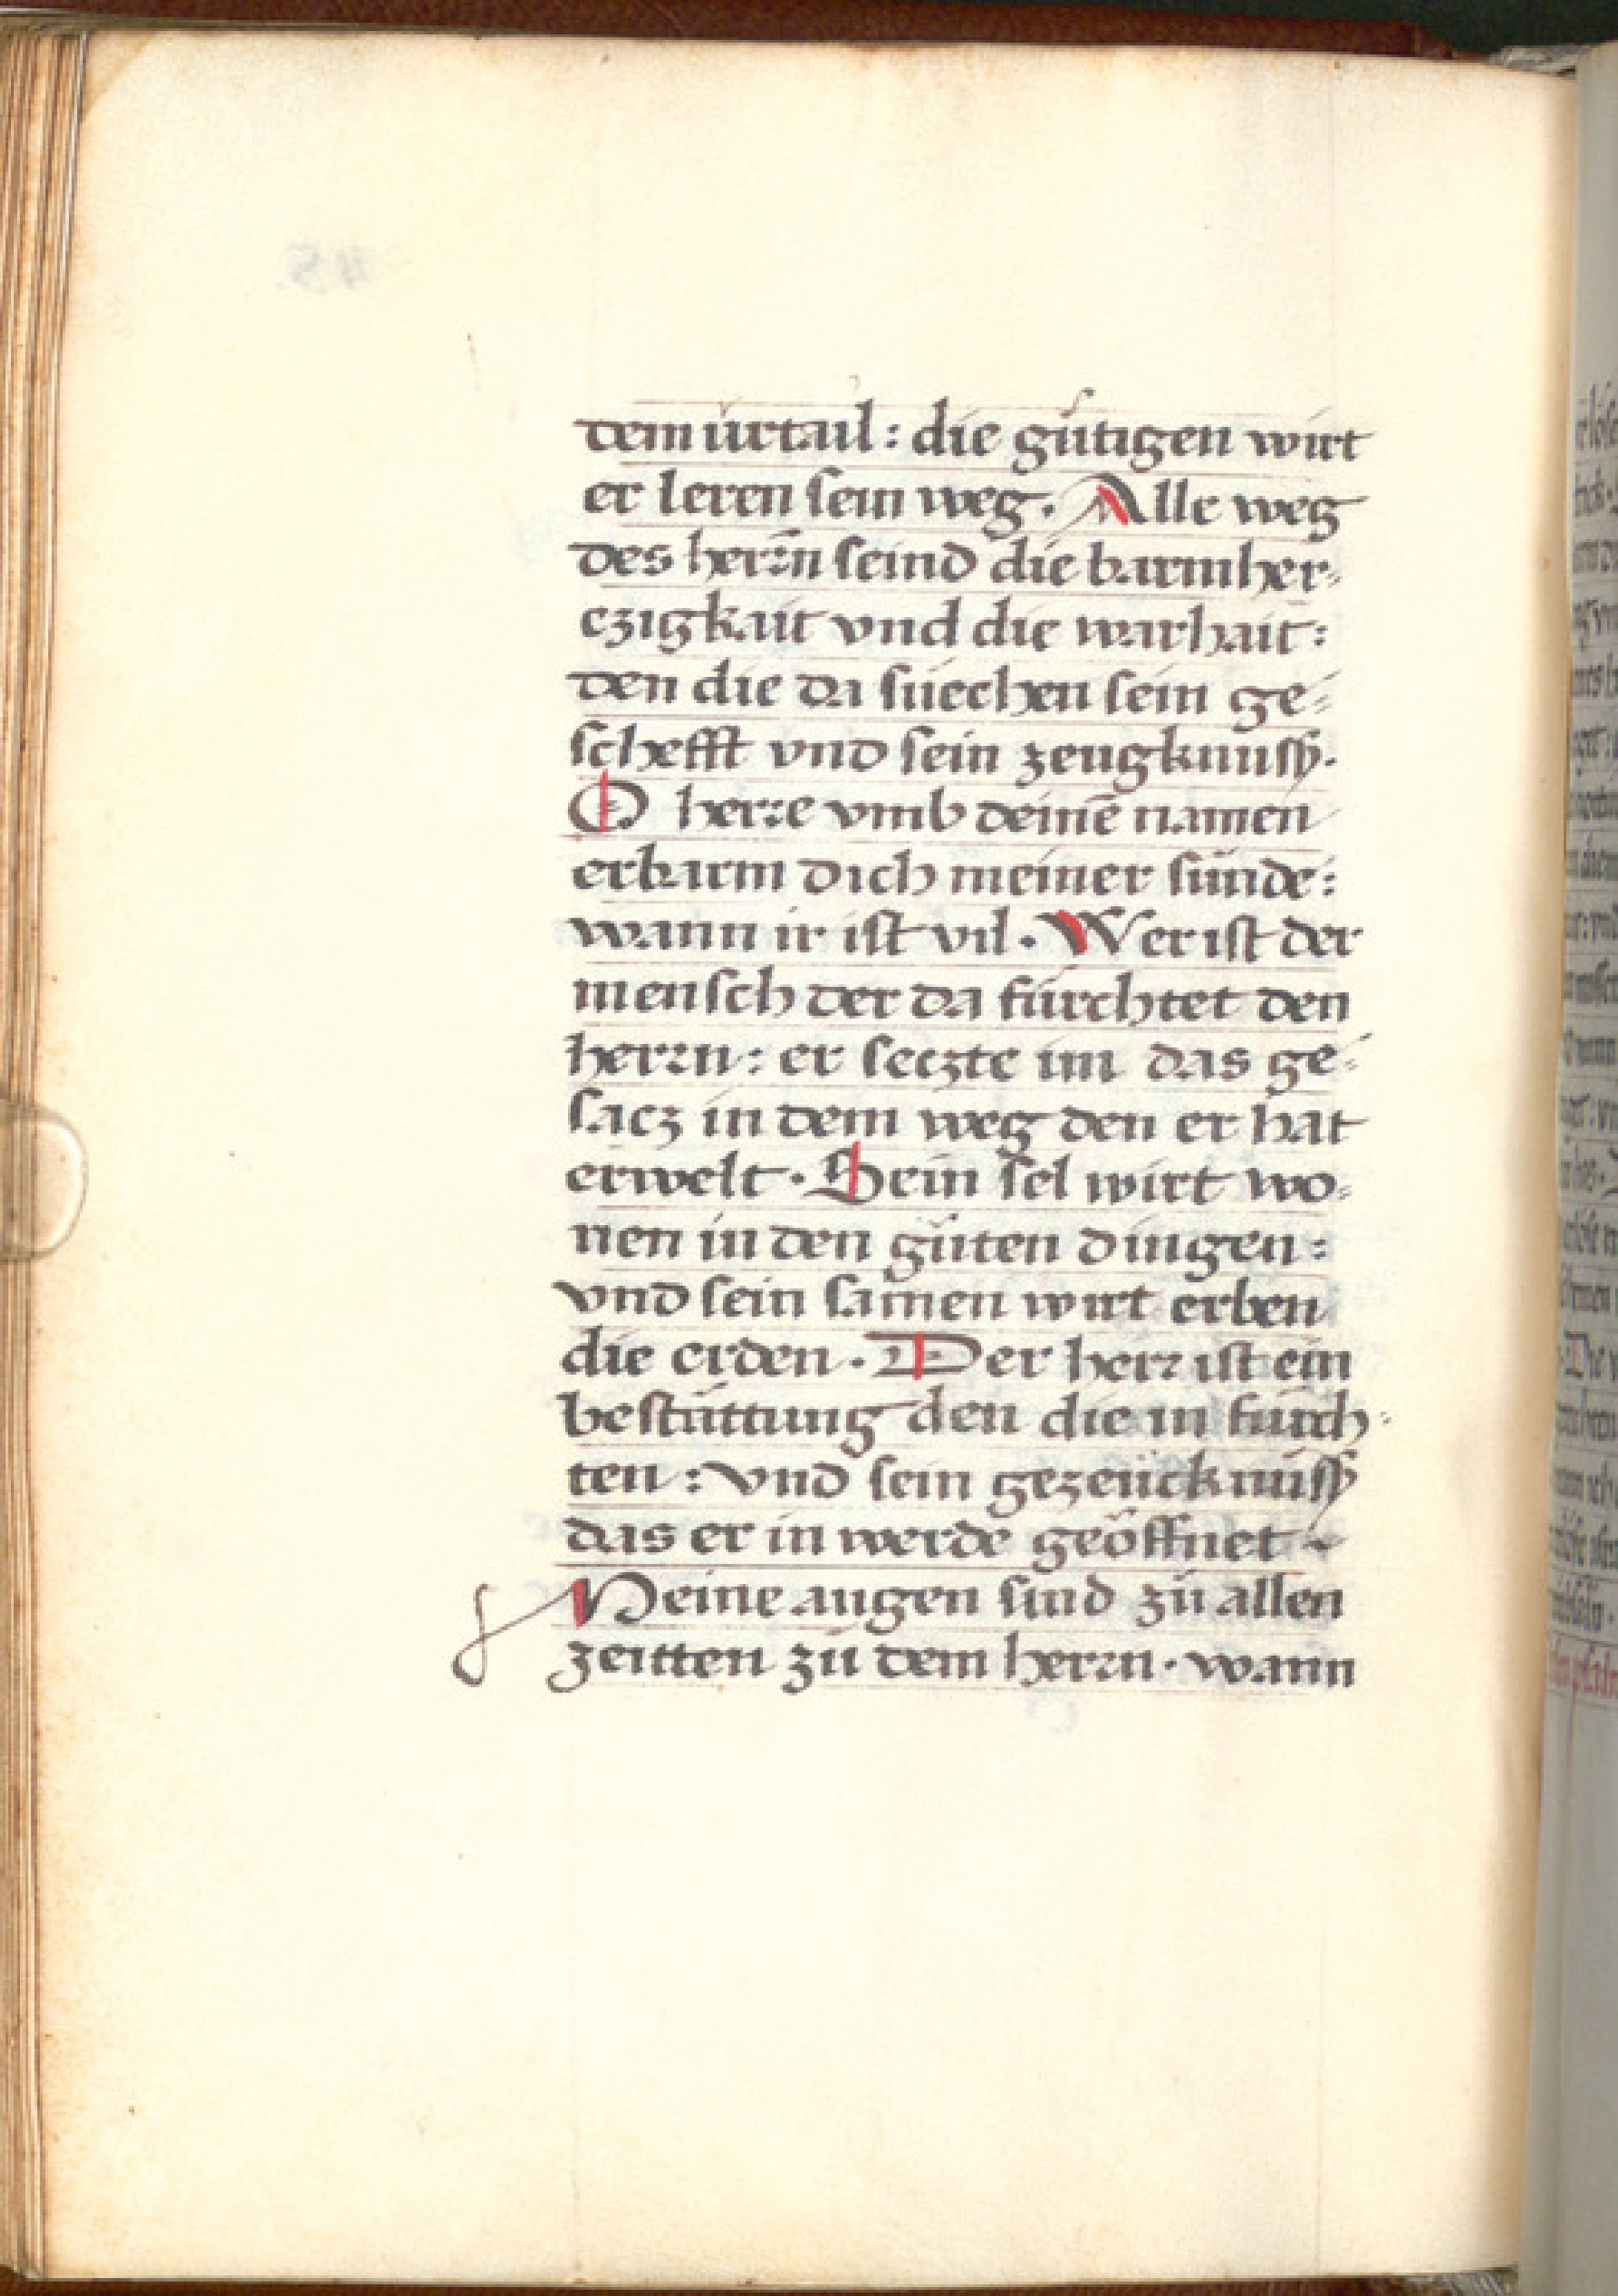 dem urtail : die gütigen wirt
er leren sein weg . Alle weg
des herrñ seind die barmher=
czigkait vnd die warhait :
den die da suechen sein ge=
schefft vnd sein zeugknuss .
O herre vmb deinē namen
erbarm dich meiner sünde :
wann ir ist vil . Wer ist der
mensch der da fürchtet den
herrn : er seczte im das ge=
sacz in dem weg den er hat
erwelt . Sein sel wirt wo=
nen in den gůten dingen :
vnd sein samen wirt erben
die erden . Der herr ist ein
bestättung den die in fürch=
ten : vnd sein gezeücknüss
das er in werde geöffnet ~
Meine augen sind zů allen
zeitten zů dem herrn . wann